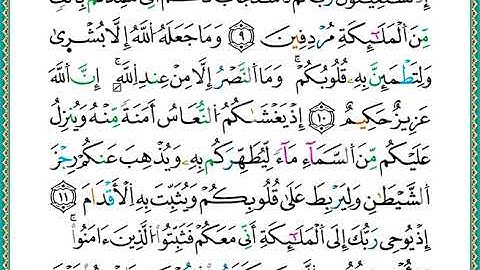 إِذْ تَسْتَغِيثُونَ رَبَّكُمْ فَٱسْتَجَابَ لَكُمْ أَنِّى مُمِدُّكُم بِأَلْفٍ
مِّنَ ٱلْمَلَٰٓئِكَةِ مُرْدِفِينَ ۝٩ وَمَا جَعَلَهُ ٱللَّهُ إِلَّا بُشْرَىٰ
وَلِتَطْمَئِنَّ بِهِۦ قُلُوبُكُمْ ۚ وَمَا ٱلنَّصْرُ إِلَّا مِنْ عِندِ ٱللَّهِ ۚ إِنَّ ٱللَّهَ
عَزِيزٌ حَكِيمٌ ۝١٠ إِذْ يُغَشِّيكُمُ ٱلنُّعَاسَ أَمَنَةً مِّنْهُ وَيُنَزِّلُ
عَلَيْكُم مِّنَ ٱلسَّمَآءِ مَآءً لِّيُطَهِّرَكُم بِهِۦ وَيُذْهِبَ عَنكُمْ رِجْزَ
ٱلشَّيْطَٰنِ وَلِيَرْبِطَ عَلَىٰ قُلُوبِكُمْ وَيُثَبِّتَ بِهِ ٱلْأَقْدَامَ ۝١١
إِذْ يُوحِى رَبُّكَ إِلَى ٱلْمَلَٰٓئِكَةِ أَنِّى مَعَكُمْ فَثَبِّتُوا۟ ٱلَّذِينَ ءَامَنُوا۟ ۚ